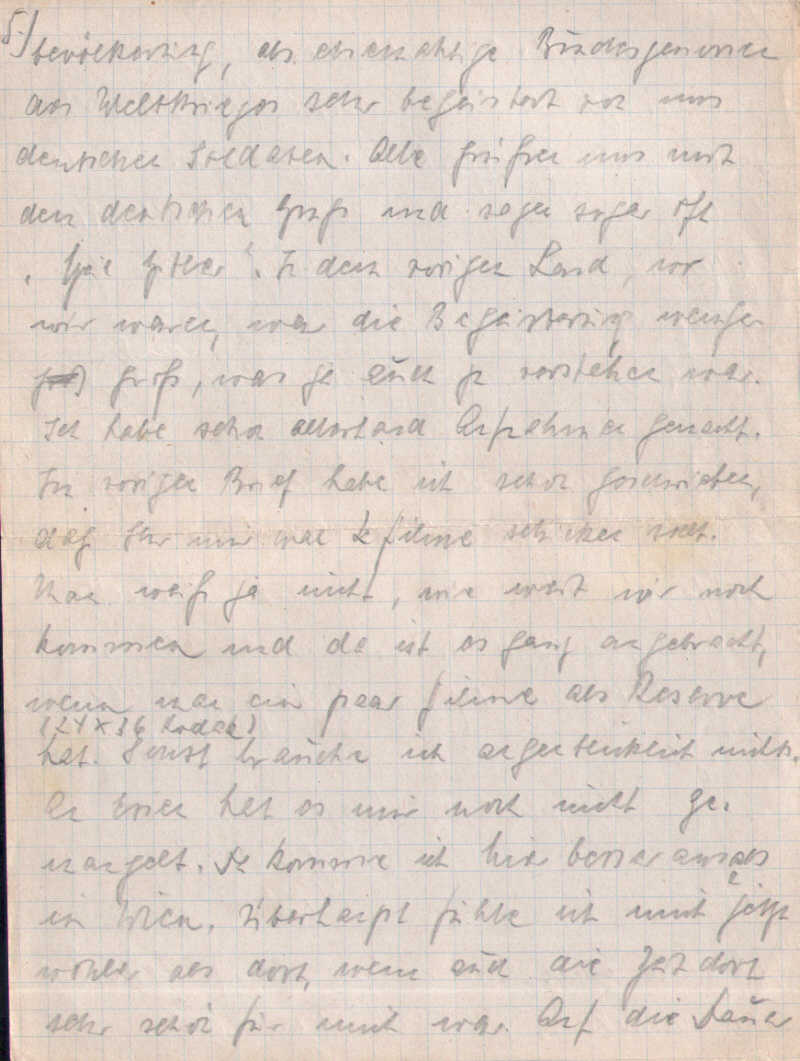 5.)
bevölkerung, als ehemalige Bundesgenossen
des Weltkrieges sehr begeistert von uns
deutschen Soldaten. Alle grüßen uns mit
dem deutschen Gruß und sagen sogar oft
"Heil Hitler". In dem vorigen Land, wo
wir waren, war die Begeisterung weniger
groß, was ja auch zu verstehen war.
Ich habe schon allerhand Aufnahmen gemacht.
Im vorigen Brief habe ich schon geschrieben,
daß Ihr mir mal Filme schicken sollt.
Man weiß ja nicht, wie weit wir noch
kommen und da ist es ganz angebracht,
wenn man ein paar Filme als Reserve
(24 x 36 Kodak)
hat. Sonst brauche ich augenblicklich nichts.
An Essen hat es mir noch nicht ge-
mangelt. Da komme ich hier besser aus als
in Wien. Überhaupt fühle ich mich jetzt
wohler als dort, wenn auch die Zeit dort
sehr schön für mich war. Auf die Dauer